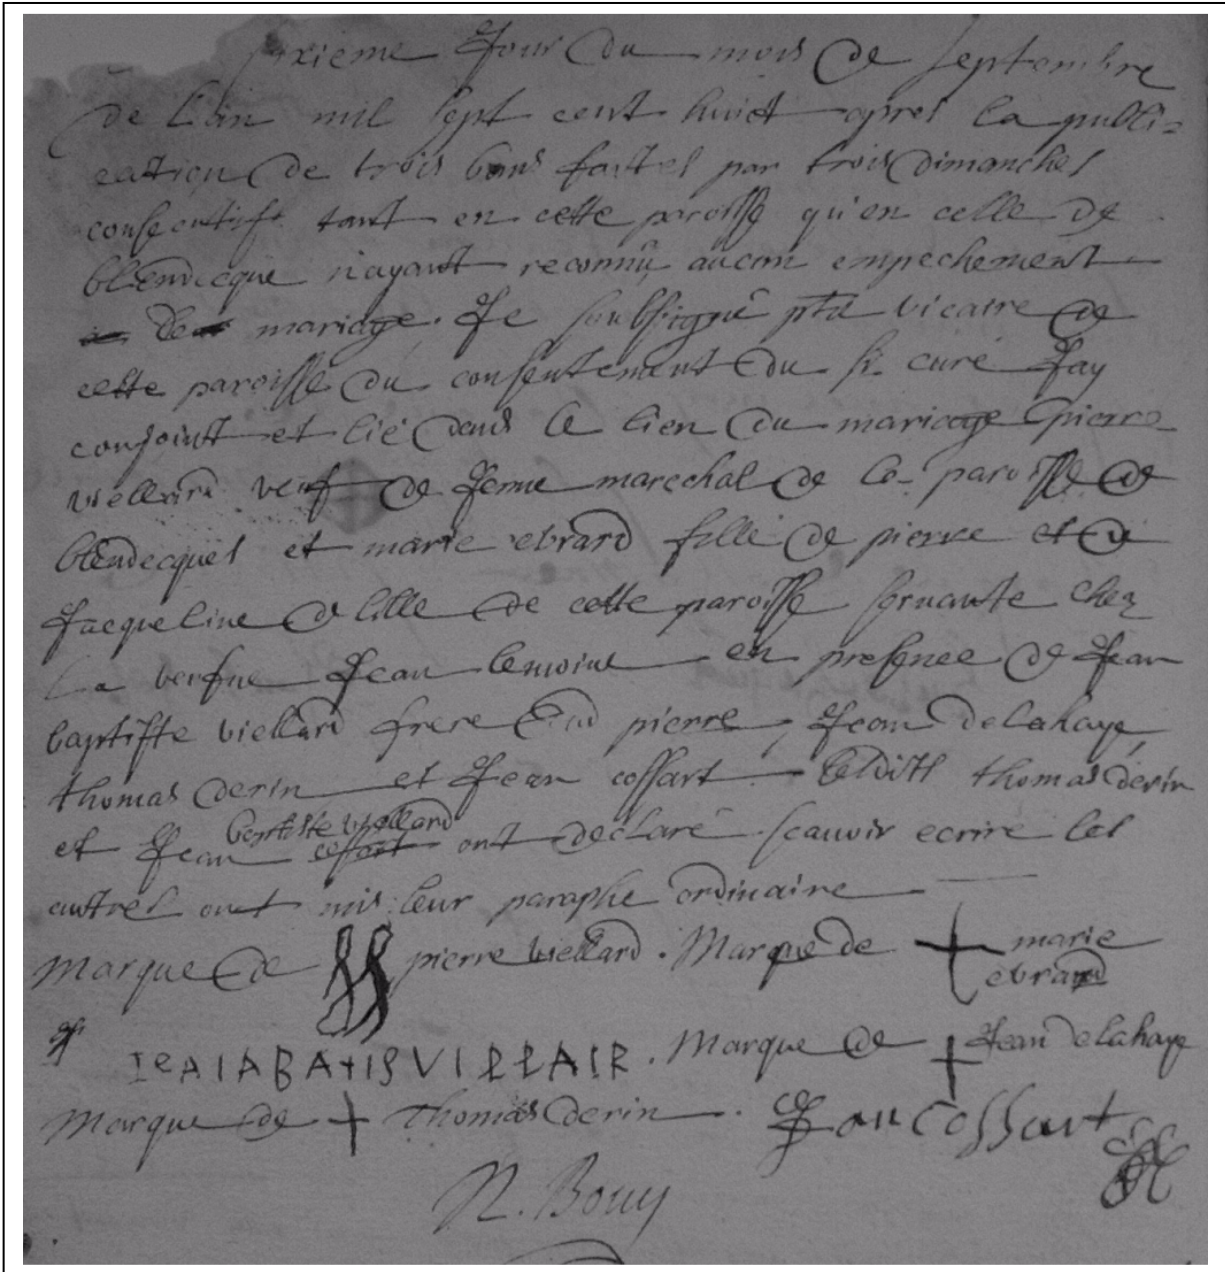 sixieme Jour du mois de septembre
de L'an mil sept cent huict apres la publi=
cation de trois bans faittes par trois dimanches
consecutifs tant en cette paroisse qu'en celle de
blendecque n'ayant reconnu aucun empechement
de mariage. Je soubsigné pbre vicaire de
cette paroisse du consentement du sr curé Jay
conjoint et lié dans le lien du mariage pierre
viellard veuf de ferme marechal de la paroisse de
blendecques et marie ebrard fille de pierre et de
Jacqueline de lille de cette paroisse servante chez
La Jean lemoine en presence de Jean
baptiste viellard frere dud pierre, Jean delahaye,
thomas derin et Jean cossart lesdits thomas derin
et Jean baptiste viellard cossart ont declaré scauoir ecrire les
autres ont mis leur paraphe ordinaire
marque de pierre viellard. Marque de marie
ebrard
IeAIABAtISVILLAIR. Marque de Jean delahaye
Marque de thomas derin. Jan Cossart
N. Bouy